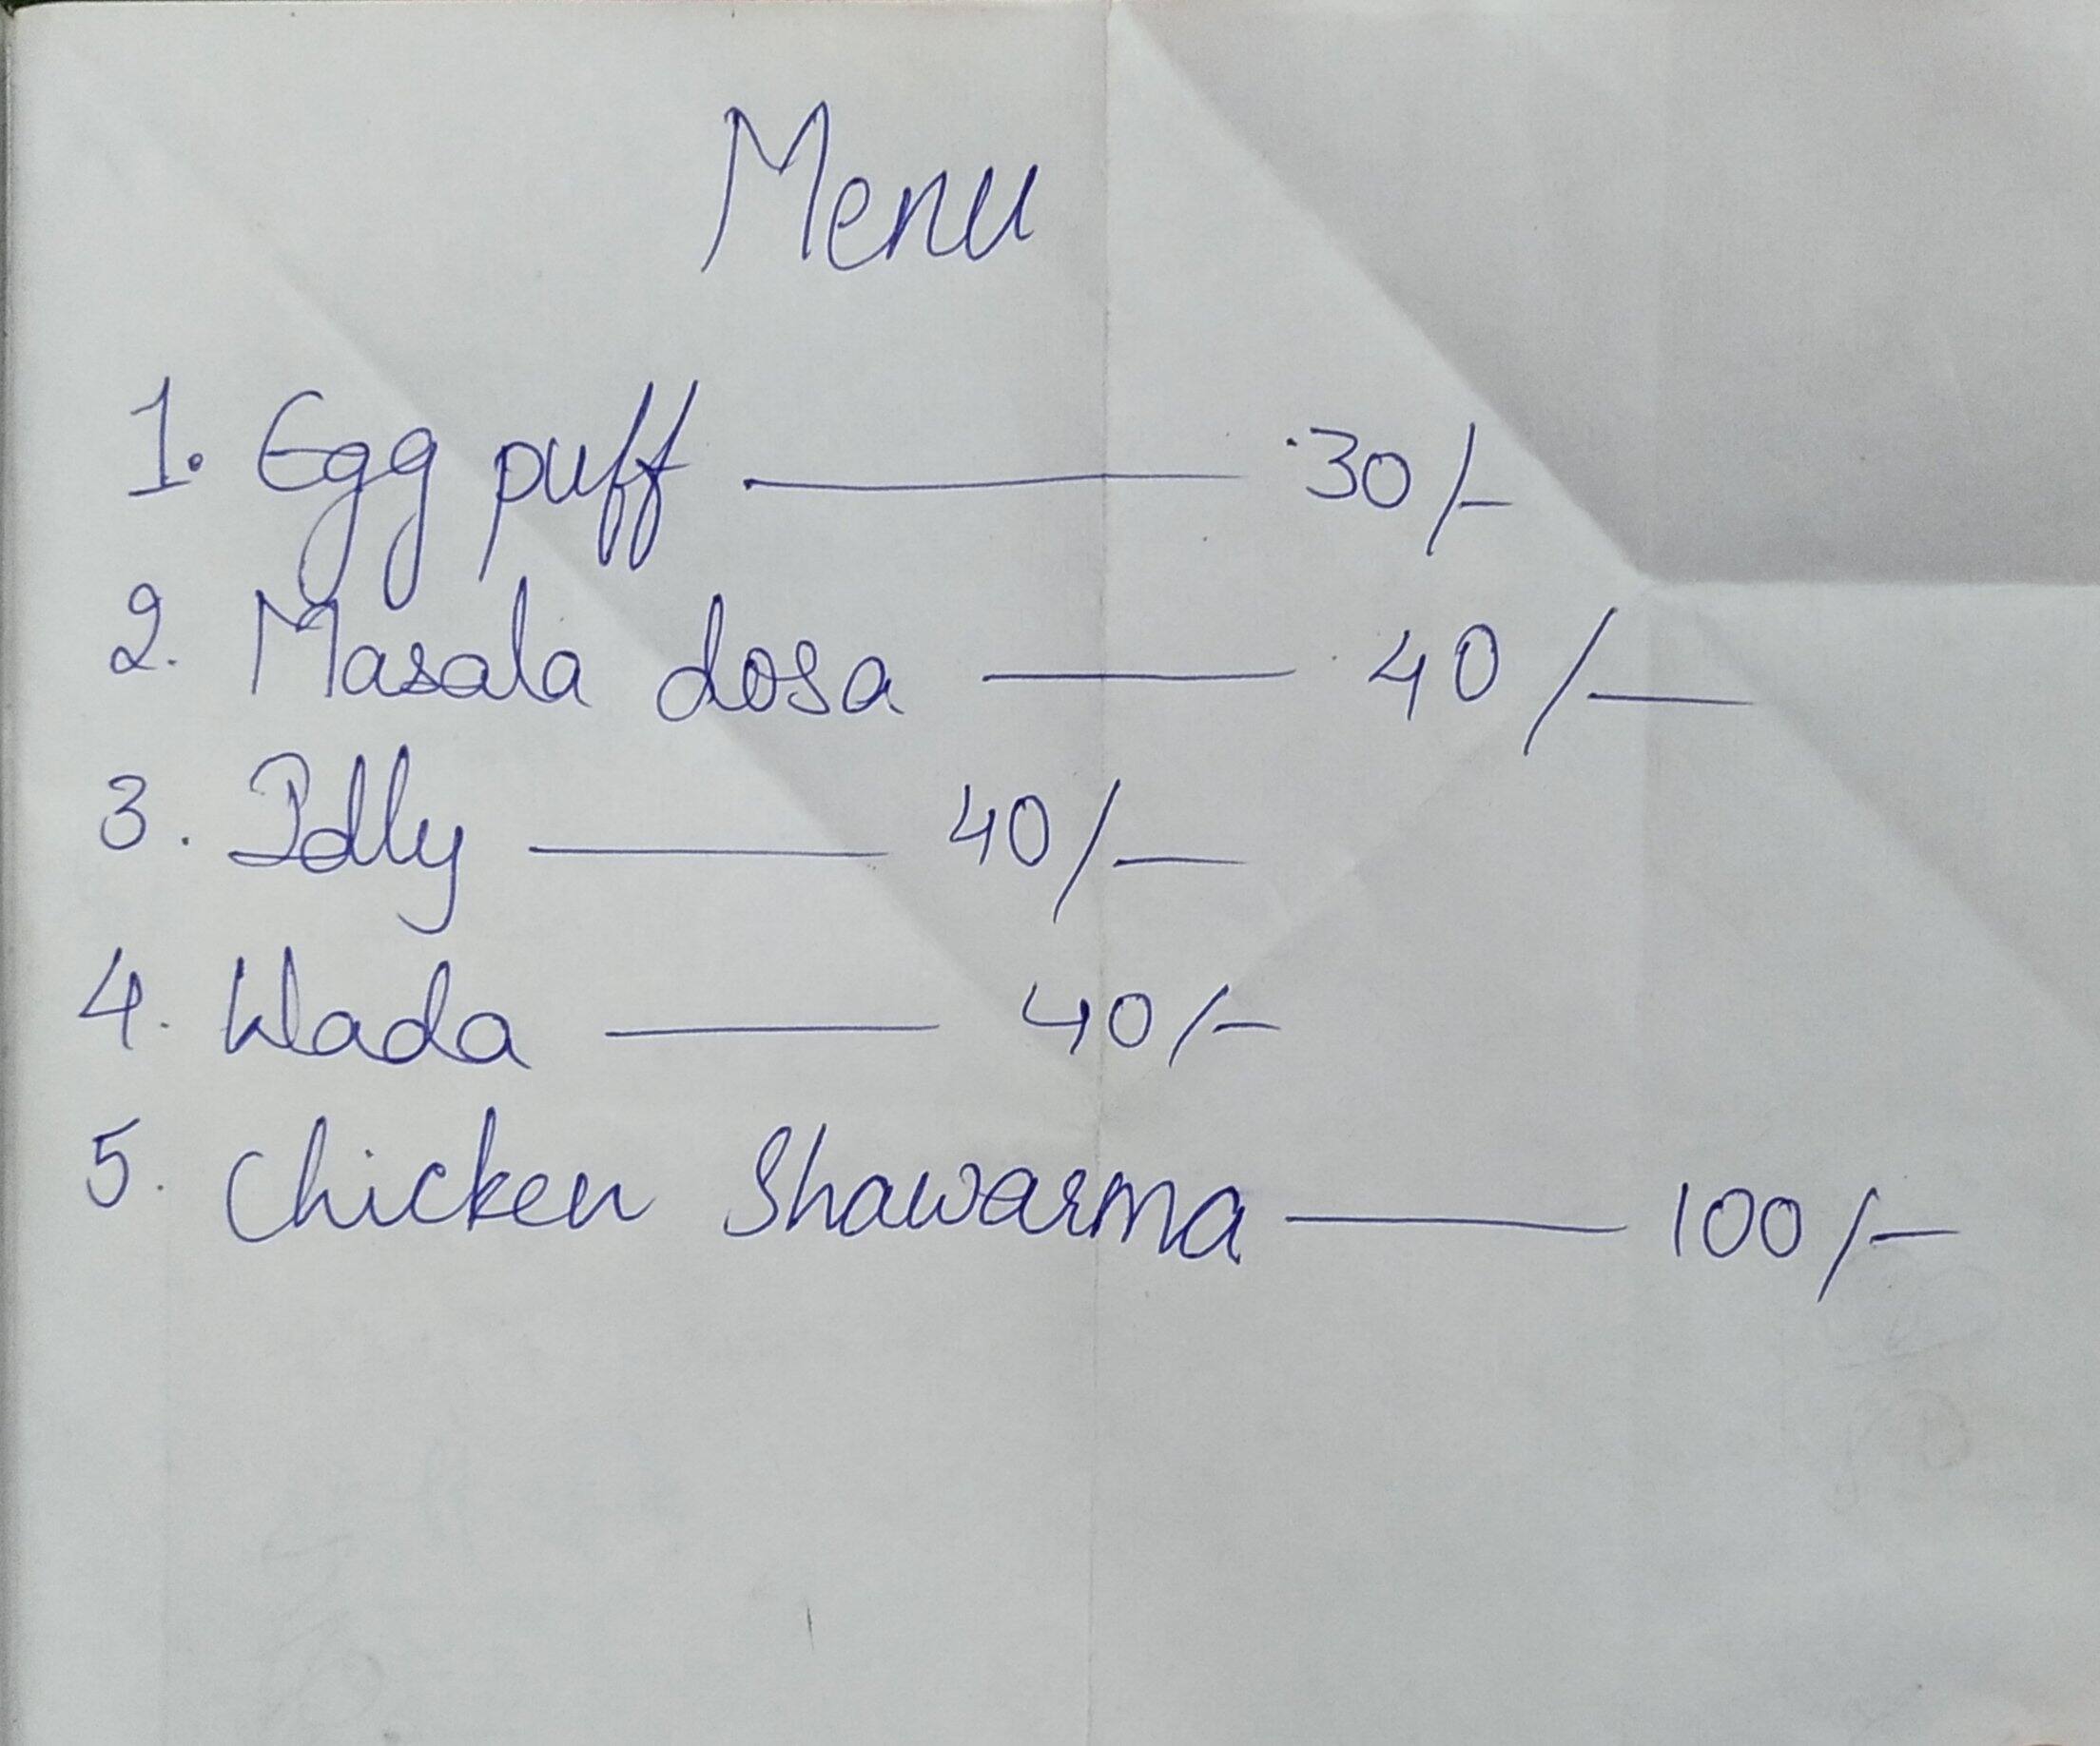 Menu
1. Egg puff — 30/-
2. Masala dosa — 40/-
3. Idly — 40/-
4. Wada — 40/-
5. Chicken Shawarma — 100/-